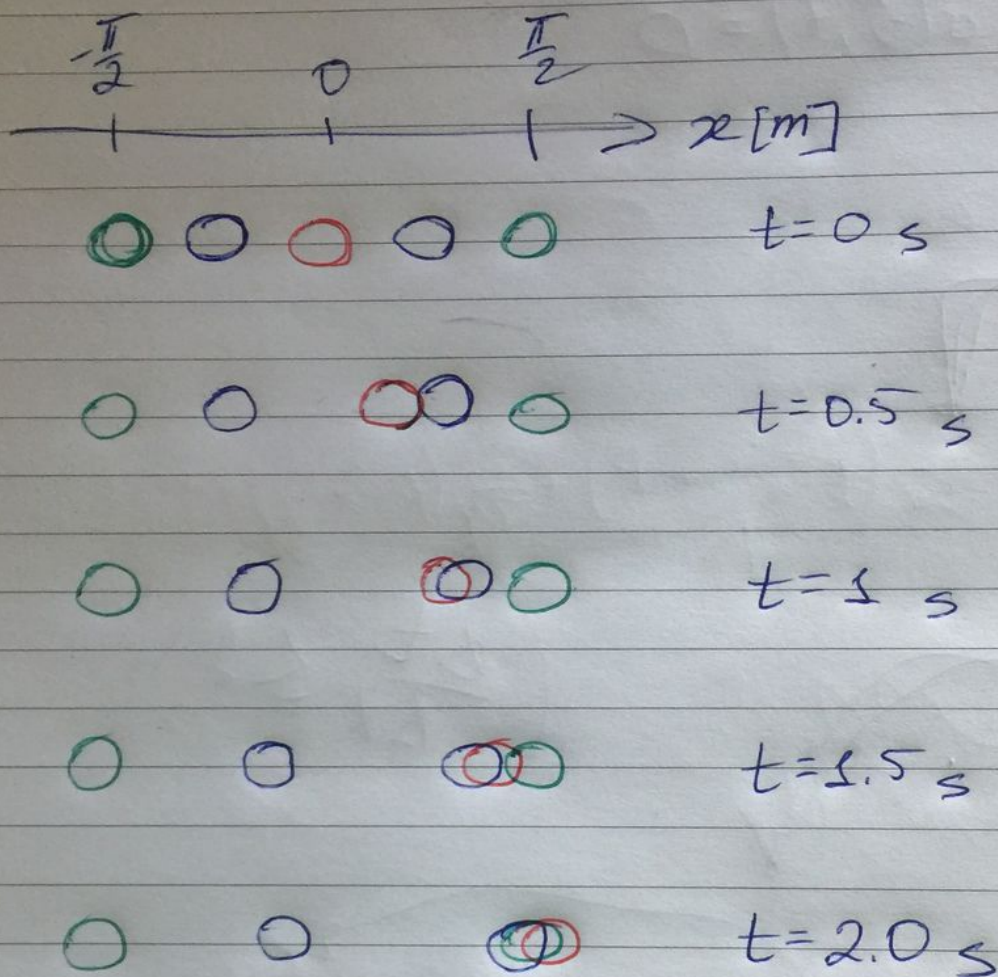 -π/2 0 π/2
x [m]
t=0 s
t=0.5 s
t=1 s
t=1.5 s
t=2.0 s